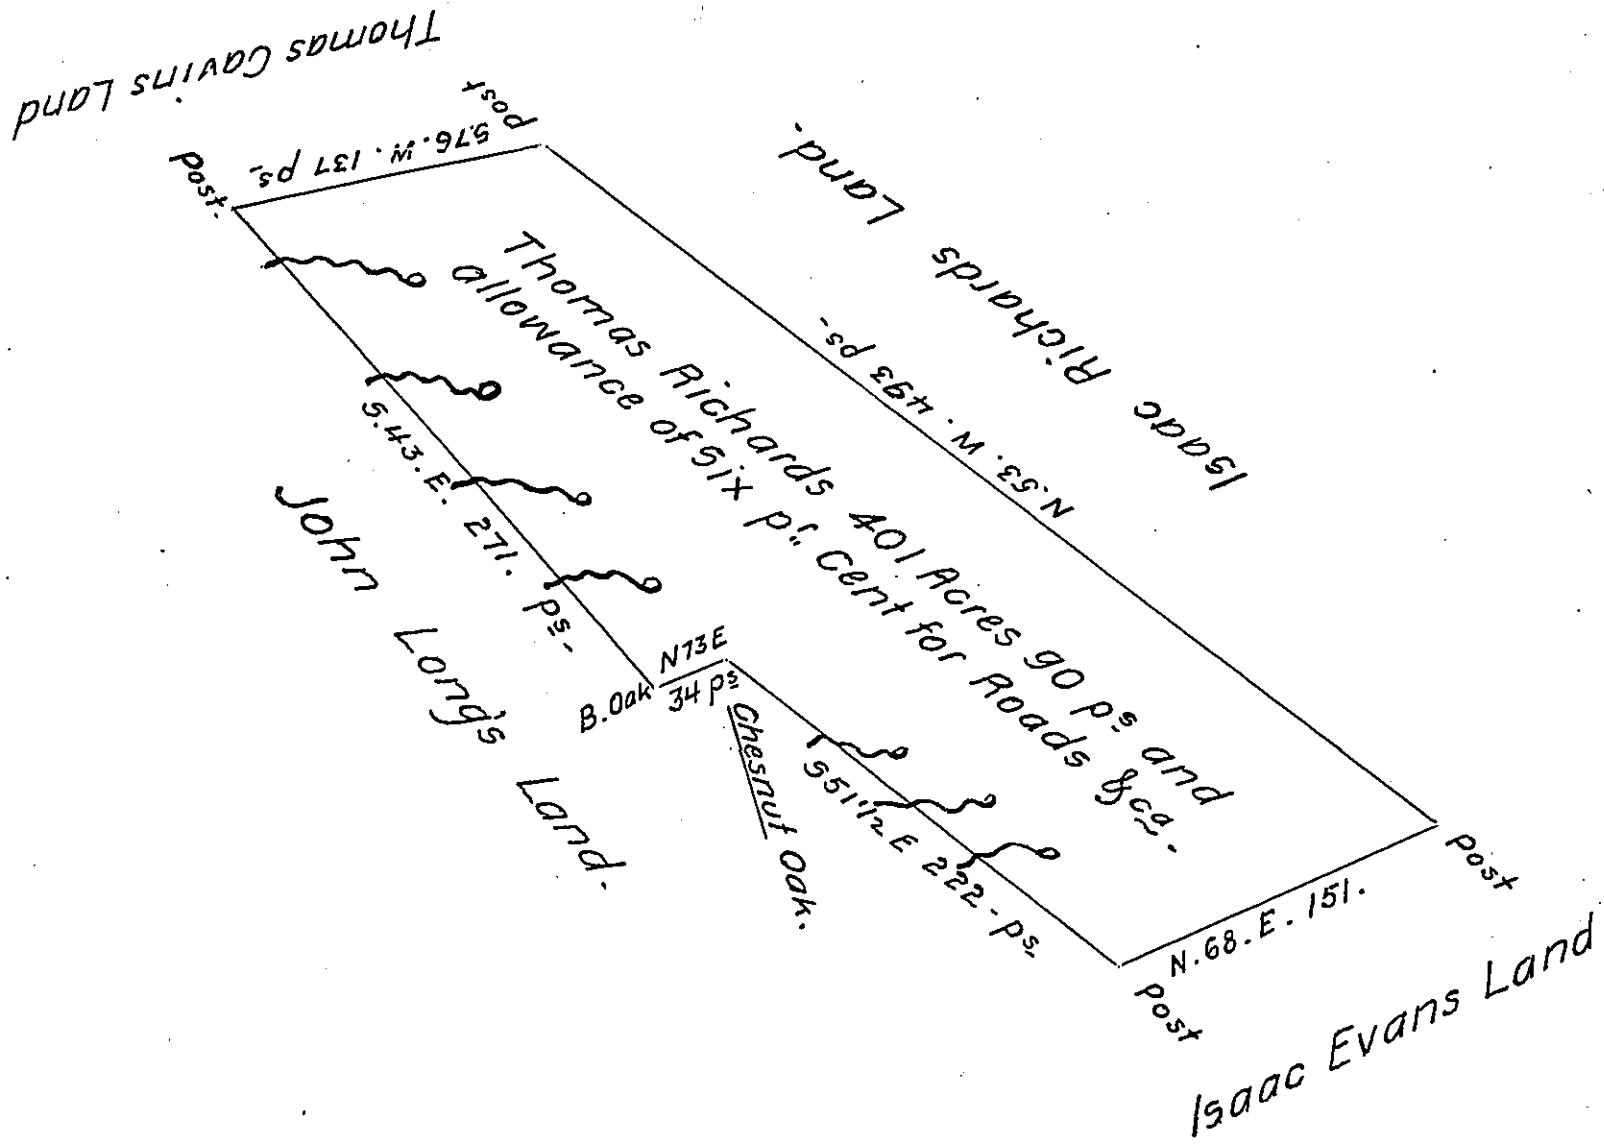 Thomas Cavins Land
post
S.76.W. 137 ps.
Post.
Isaac Richards Land.
N.53.W. 493 ps-
Thomas Richards 401 Acres 90 ps and
allowance of Six pr. Cent for Roads &ca.
S.43.E. 271. ps.-
John Long's Land.
B.Oak
N73E
34 ps
Chesnut Oak.
S51½E 222-ps.
Post
N.68.E. 151.
Post
Isaac Evans Land